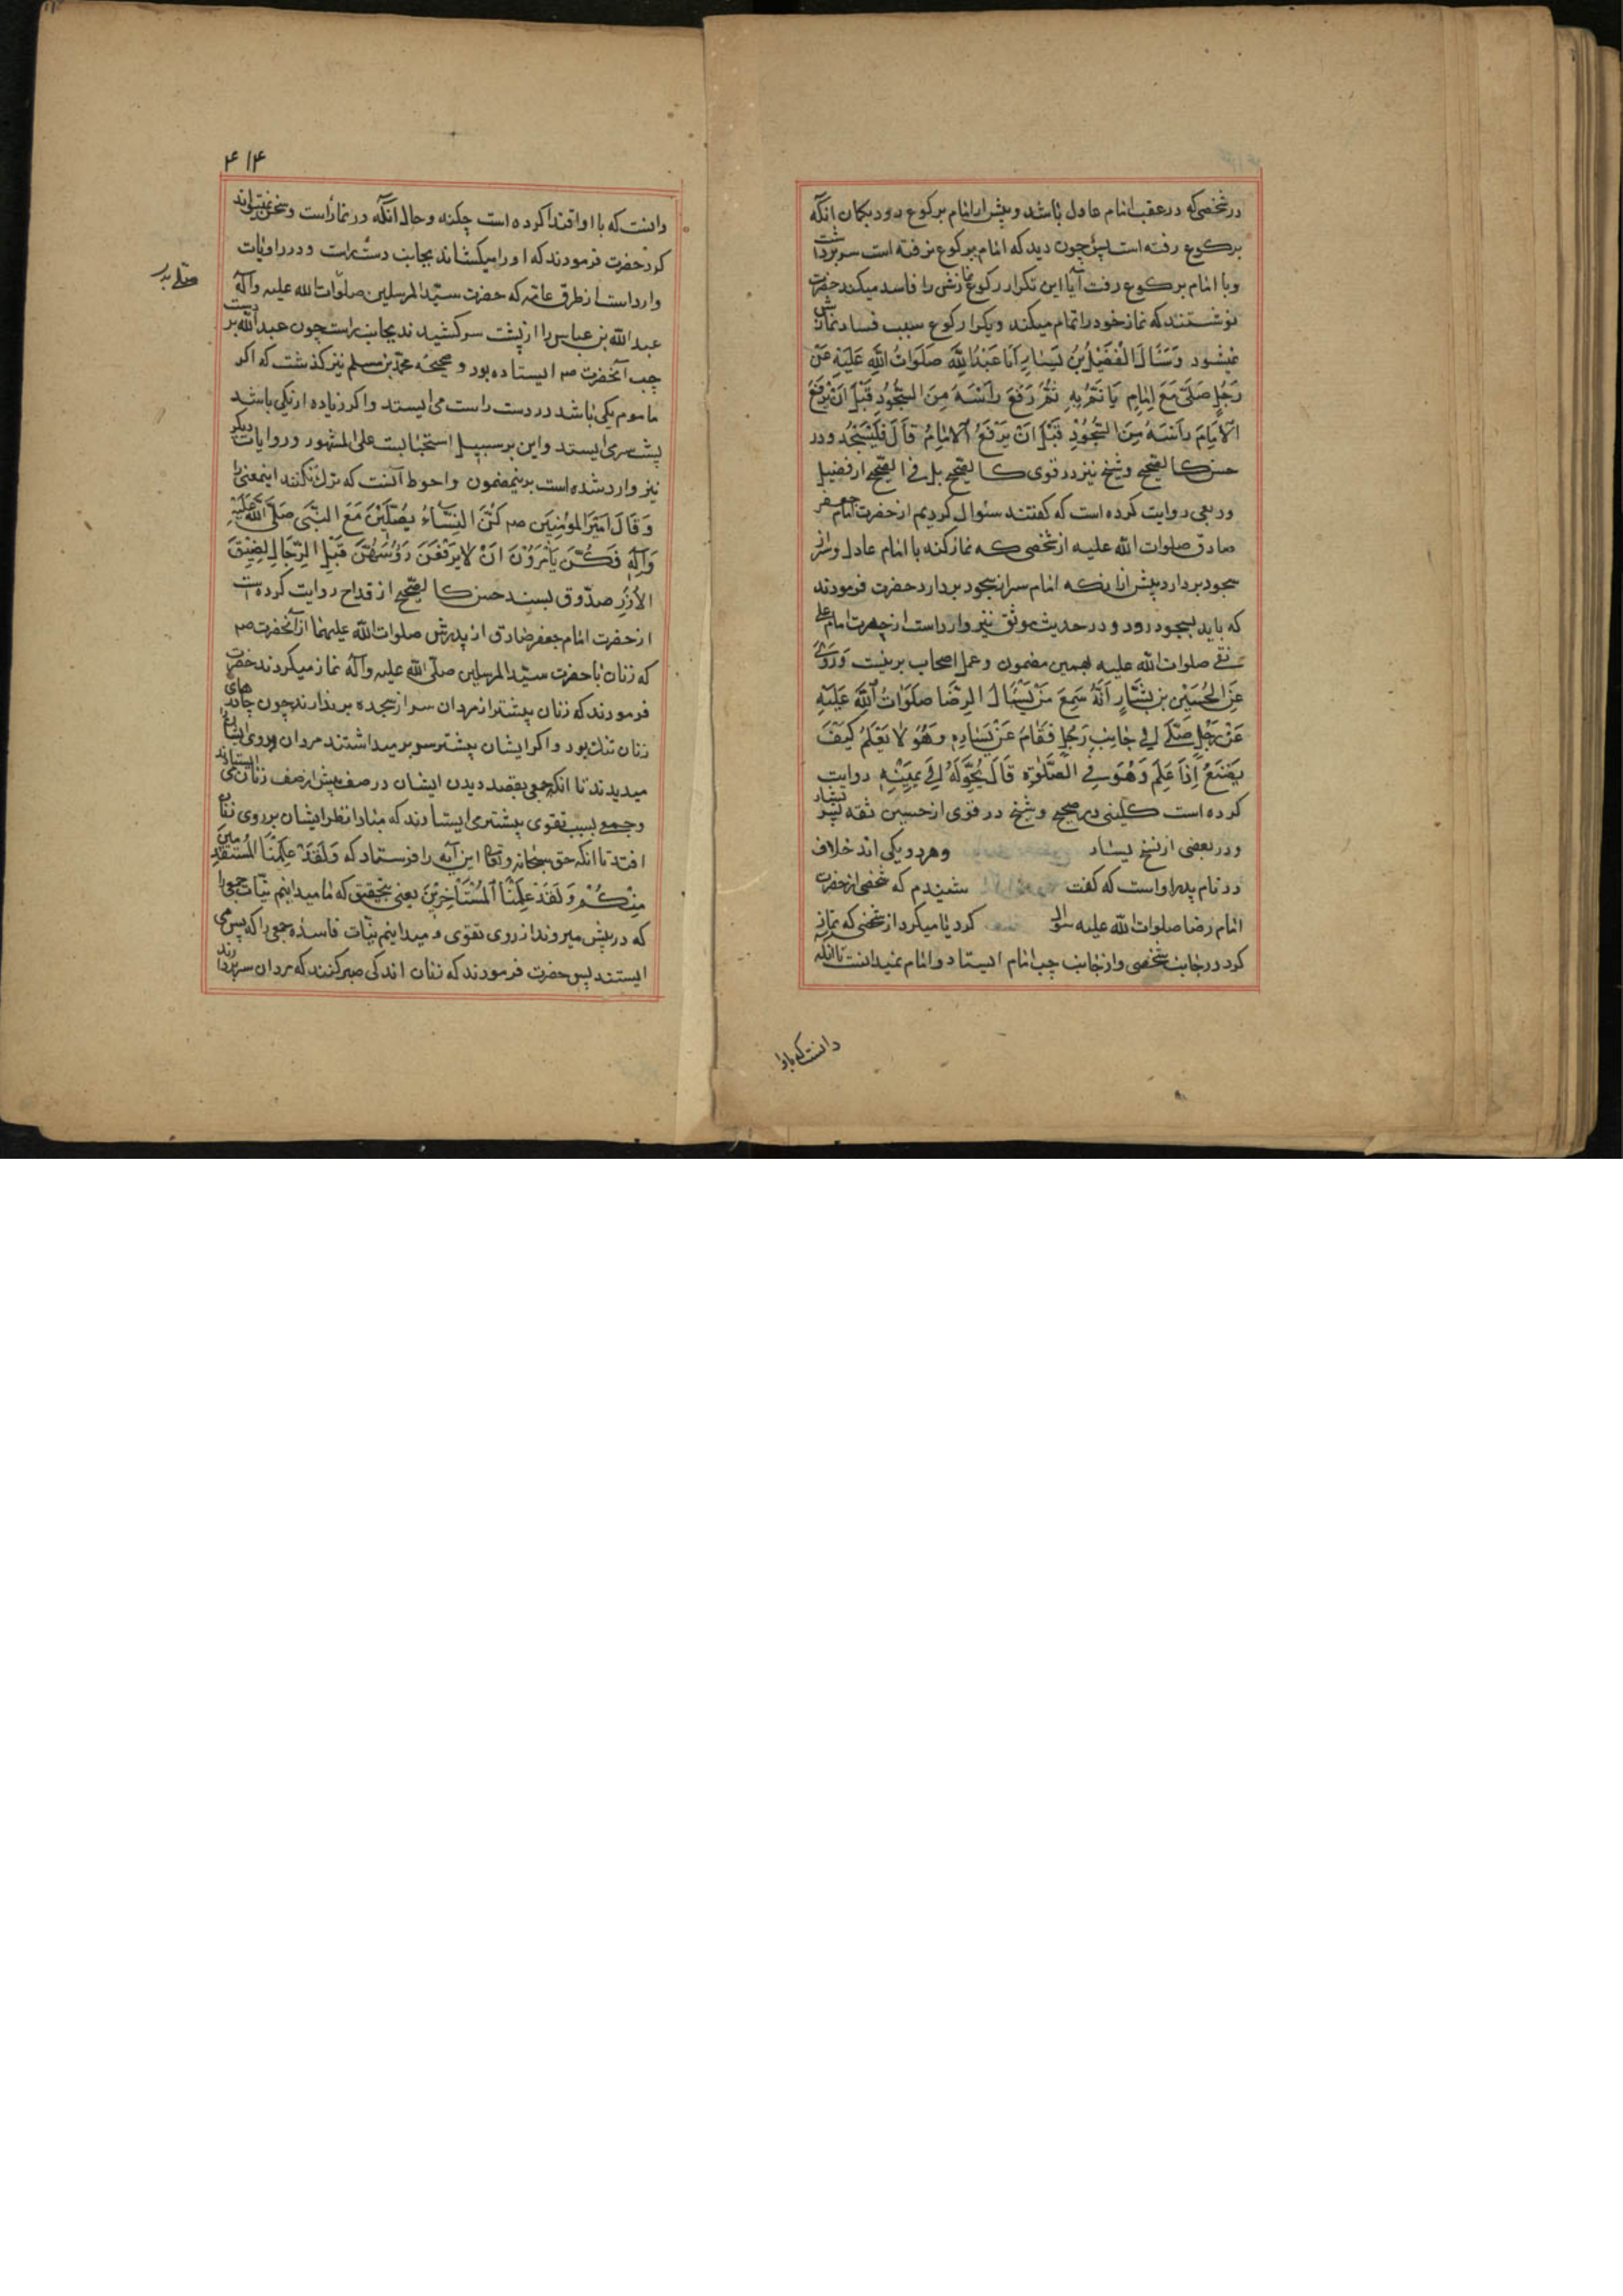 در شخصی که در عقب امام عادل باشد و پیش از امام برکوع رود بکمان انکه
برکوع رفته است پس چون دید که امام برکوع نرفته است سر برداشت
و با امام برکوع رفت آیا این تکرار رکوع نمازش را فاسد میکند حضرت
نوشتند که نماز خود را تمام میکند و تکرار رکوع سبب فساد نمازش
نمیشود وَسَئَالَ الْفُضَیْلُ بْنُ یَسَارٍ اَبَا عَبْدِ اللّٰهِ صَلَوَاتُ اللّٰهِ عَلَیْهِ عَنْ
رَجُلٍ صَلّٰی مَعَ اِمَامٍ یَاْتَمُّ بِهِ ثُمَّ رَفَعَ رَاْسَهُ مِنَ السُّجُودِ قَبْلَ اَنْ یَرْفَعَ
الْاِمَامُ رَاْسَهُ مِنَ السُّجُودِ قَبْلَ اَنْ یَرْفَعَ الْاِمَامُ قَالَ فَلْیَسْجُدْ و در
حسن کالصحیح و شیخ نیز در قوی کالصحیح بل فی الصحیح از فضیل
و ربعی روایت کرده است که کفتند سئوال کردیم از حضرت امام جعفر
صادق صلوات الله علیه از شخصی که نماز کند با امام عادل و سر از
سجود بردارد پیش از انکه امام سر از سجود بردارد حضرت فرمودند
که باید بسجود رود و در حدیث موثق نیز وارد است از حضرت امام علی
نقی صلوات الله علیه بهمین مضمون و عمل اصحاب برینست وَرُوِیَ
عَنِ الْحُسَیْنِ بْنِ بَشَّارٍ اَنَّهُ سَمِعَ مَنْ یَسْئَالُ الرِّضَا صَلَوَاتُ اللّٰهِ عَلَیْهِ
عَنْ رَجُلٍ صَلّٰی اِلٰی جَانِبِ رَجُلٍ فَقَامَ عَنْ یَسَارِهِ وَهُوَ لَا یَعْلَمُ کَیْفَ
یَصْنَعُ اِذَا عَلِمَ وَهُوَ فِی الصَّلٰوةِ قَالَ یُحَوِّلُهُ اِلٰی یَمِیْنِهِ روایت
کرده است کلینی در صحیح و شیخ در قوی از حسین ثقه پسر بشار
و در بعضی از نسخ یسار و هر دو یکی اند خلاف
در نام پدر او است که کفت شنیدم که شخصی از حضرت
امام رضا صلوات الله علیه سوال کرد یا میکرد از شخصی که نماز
کرد در جانب شخصی و از جانب چپ امام ایستاد و امام نمیدانست تا انکه
دانست که با او
۴۱۴
دانست که با او اقتدا کرده است چکنه و حال انکه در نماز است و سخن نمیتواند
کرد حضرت فرمودند که او را میکشاند بجانب دست راست و در روایات
وارد است از طرق عامه که حضرت سید المرسلین صلوات الله علیه و آله
عبد الله بن عباس را از پشت سر کشیدند بجانب راست چون عبد الله بر دست
چپ آنحضرت صم ایستاده بود و صحیحه محمد بن مسلم نیز کذشت که اکر
ماموم یکی باشد در دست راست می ایستد و اکر زیاده از یکی باشد
پشت سر می ایستد و این بر سبیل استحبابست علی المشهور و روایات دیکر
نیز وارد شده است برینمضمون و احوط آنست که ترک نکنند اینمعنی را
وَقَالَ اَمِیْرَ الْمُؤْمِنِیْنَ صم کُنَّ النِّسَاءُ یُصَلِّیْنَ مَعَ النَّبِیِّ صَلَّی اللّٰهُ عَلَیْهِ
وَآلِهِ فَکُنَّ یُؤْمَرْوْنَ اَنْ لَا یَرْفَعْنَ رَؤُسَهُنَّ قَبْلَ الرِّجَالِ لِضِیْقِ
الْاُزُرِ صدّوق بسند حسن کالصحیح از قداح روایت کرده است
از حضرت امام جعفر صادق از پدرش صلوات الله علیهما از آنحضرت صم
که زنان با حضرت سید المرسلین صلی الله علیه و آله نماز میکردند حضرت
فرمودند که زنان پیشتر از مردان سر از سجده برندارند چون چادرهای
زنان تنک بود و اکر ایشان پیشتر سر بر میداشتند مردان روی ایشانرا
میدیدند تا انکه جمعی بقصد دیدن ایشان در صف پیش از صف زنان می ایستادند
و جمعی بسبب تقوی پیشتر می ایستادند که مبادا نظر ایشان بر روی زنان
افتد تا انکه حق سبحانه و تعالی این آیه را فرستاد که وَلَقَدْ عَلِمْنَا الْمُسْتَقْدِمِیْنَ
مِنْکُمْ وَلَقَدْ عَلِمْنَا الْمُسْتَاْخِرِیْنَ یعنی بتحقیق که ما میدانیم نیّات جمعی را
که در پیش میروند از روی تقوی و میدانیم نیّات فاسده جمعی را که پس می
ایستند پس حضرت فرمودند که زنان اندکی صبر کنند که مردان سر بردارند